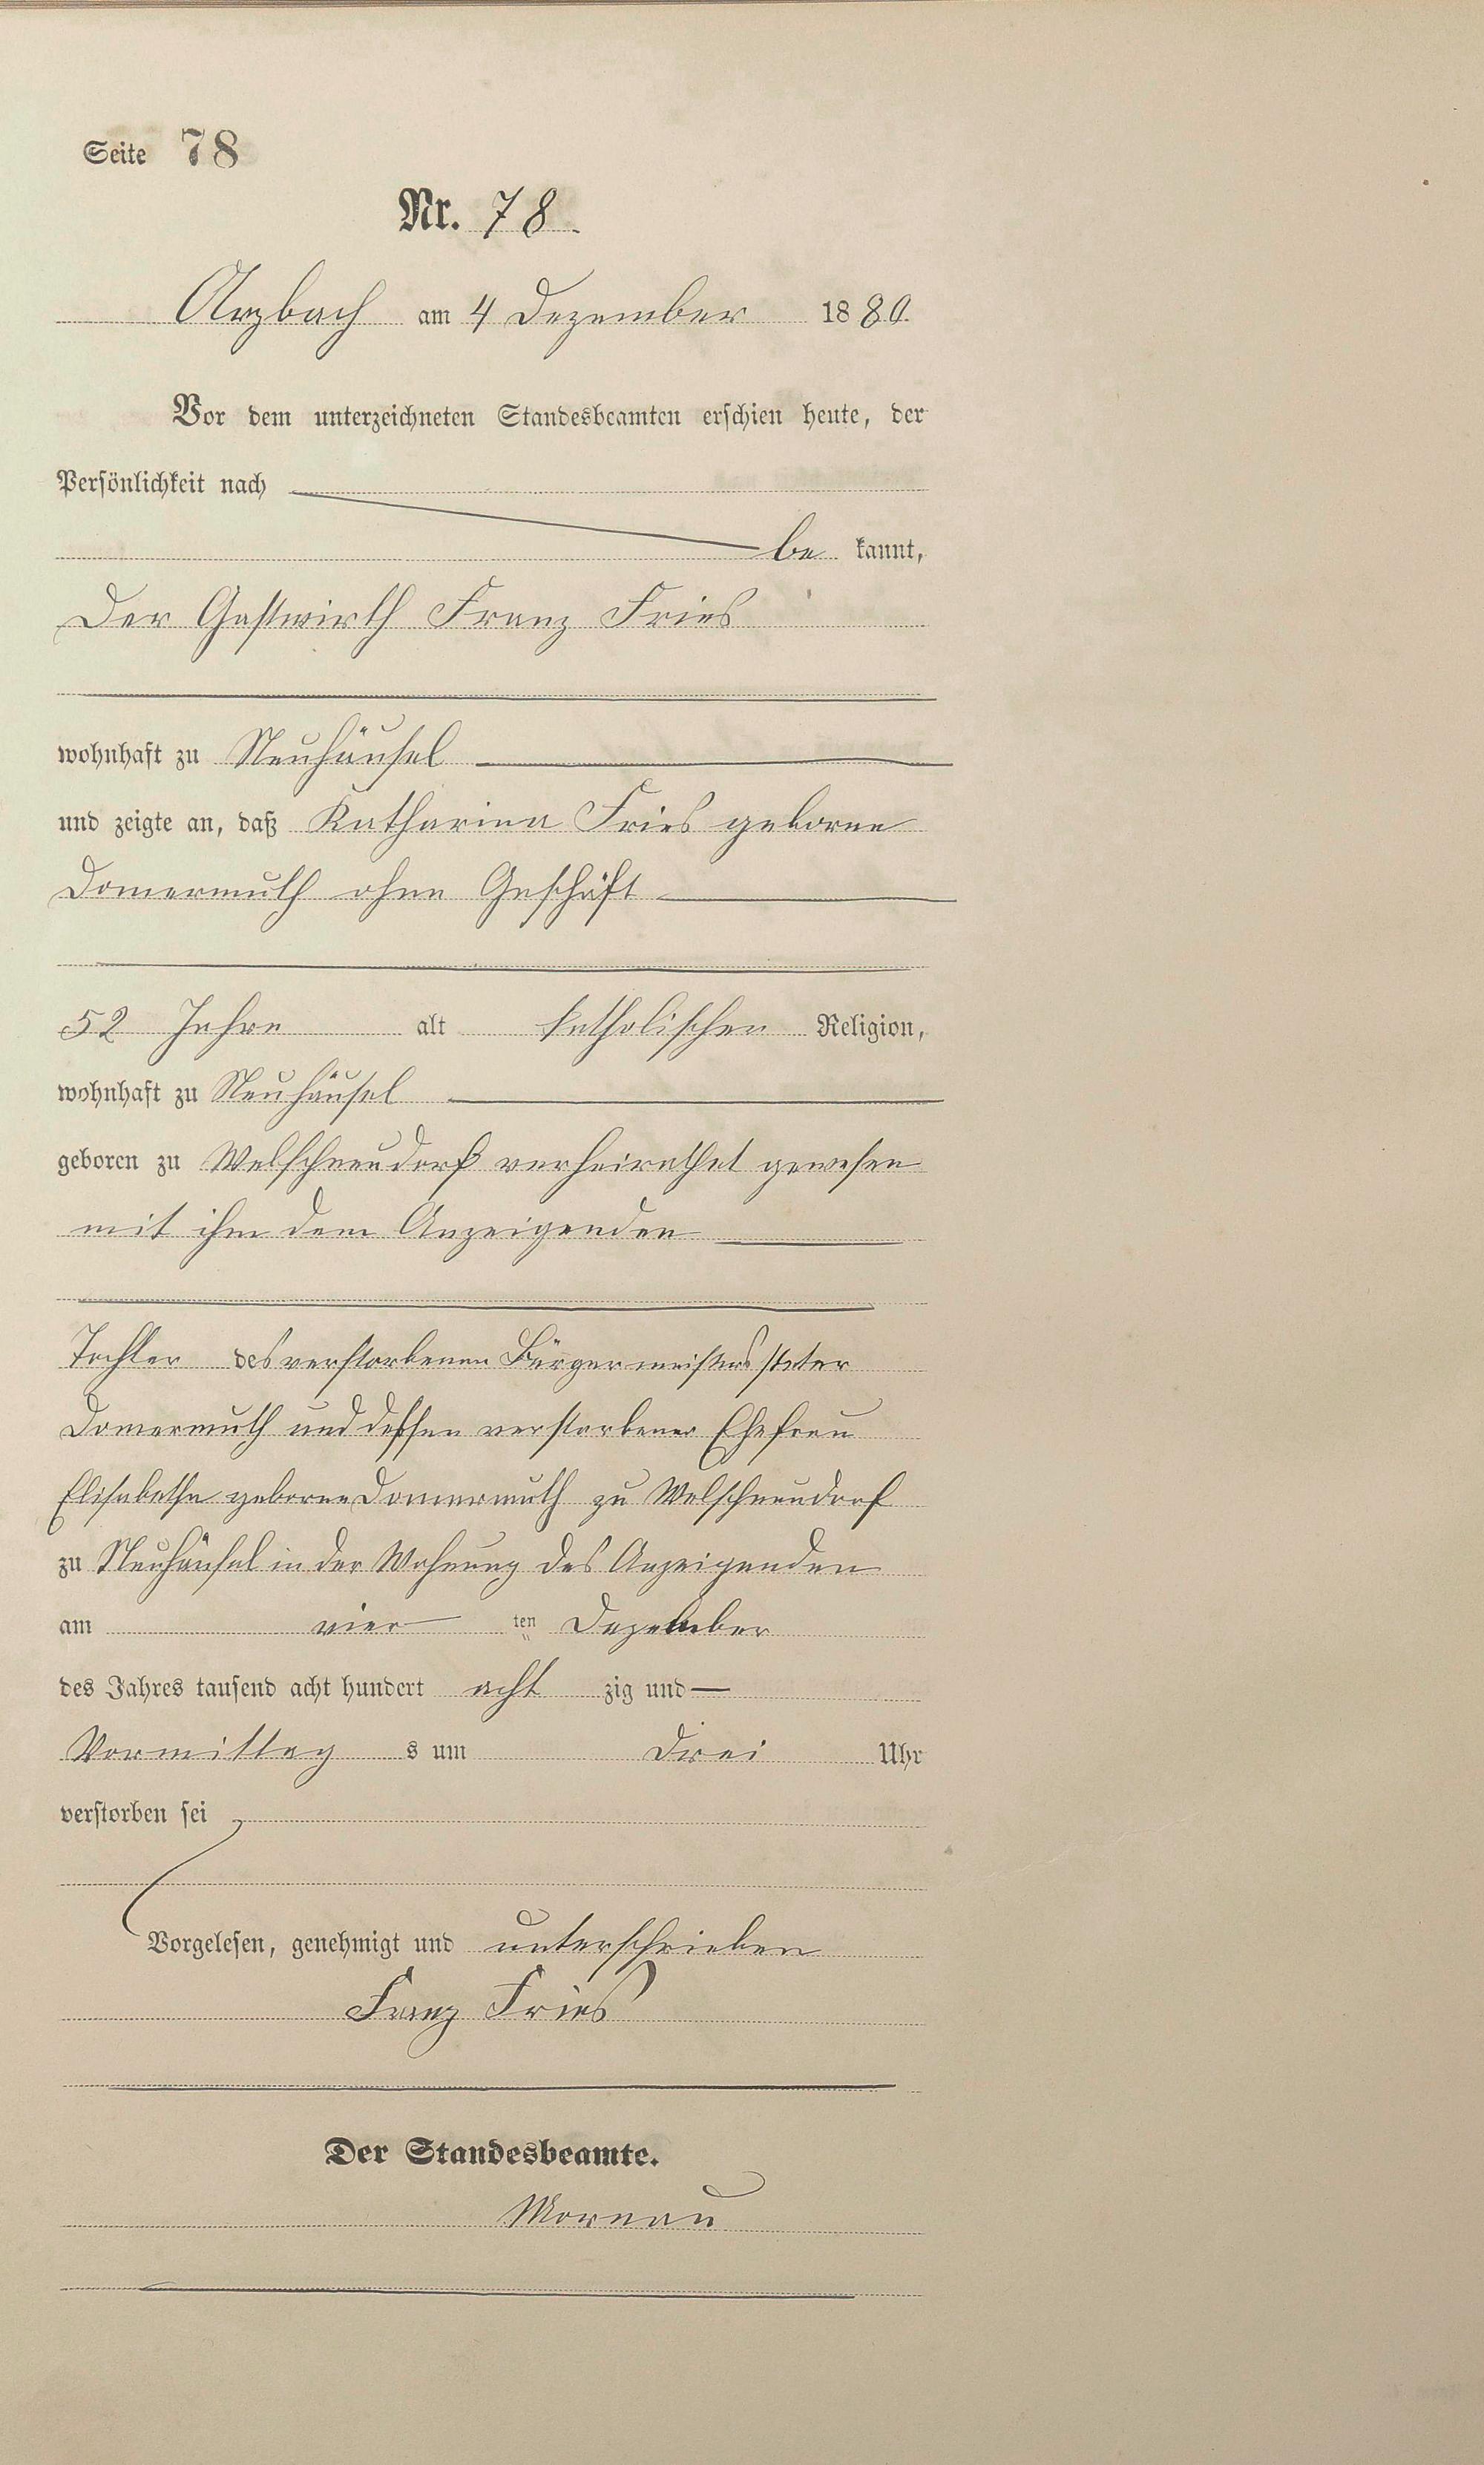 Seite 78
Nr. 78.
Arzbach am 4 Dezember 1880.
Vor dem unterzeichneten Standesbeamten erschien heute, der
Persönlichkeit nach
be kannt,
Der Gastwirth Franz Fries
wohnhaft zu Neuhäusel
und zeigte an, daß Katharina Fries geborne
Domermuth ohne Geschäft
52 Jahre alt katholischen Religion,
wohnhaft zu Neuhäusel
geboren zu Welschneudorf verheirathet gewesen
mit ihm dem Anzeigenden
Tochter des verstorbenen Bürgermeisters Peter
Domermuth und dessen verstorbener Ehefrau
Elisabetha geborne Domermuth zu Welschneudorf
zu Neuhäusel in der Wohnung des Anzeigenden
am vier ten Dezember
des Jahres tausend acht hundert acht zig und —
Vormittag s um Drei Uhr
verstorben sei
Vorgelesen, genehmigt und unterschrieben
Franz Fries
Der Standesbeamte.